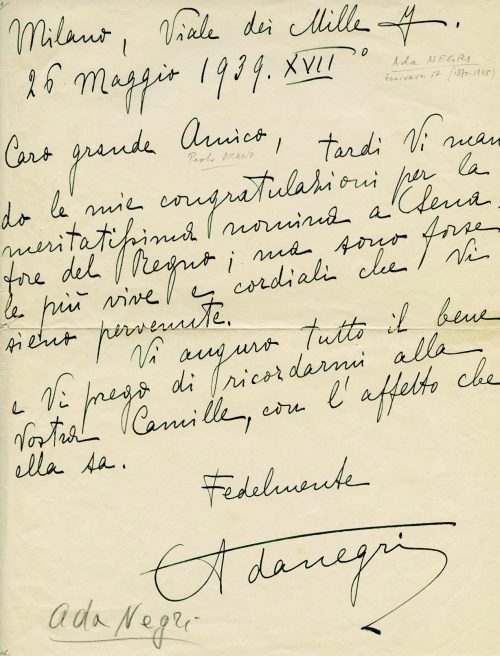 Milano, Viale dei Mille 7.
26 Maggio 1939. XVII°
Ada NEGRI
(1870-1945)
Caro grande Amico, tardi Vi man
Paolo ORANO
do le mie congratulazioni per la
meritatissima nomina a Sena-
tore del Regno; ma sono forse
le più vive e cordiali che Vi
sieno pervenute.
Vi auguro tutto il bene
e Vi prego di ricordarmi alla
Vostra Camille, con l'affetto che
ella sa.
Fedelmente
Adanegri
Ada Negri